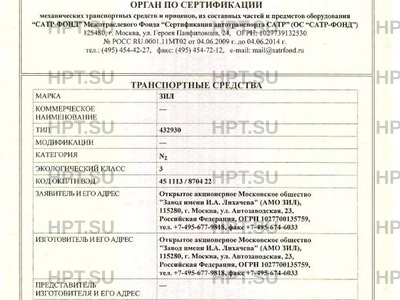 ОРГАН ПО СЕРТИФИКАЦИИ
механических транспортных средств и прицепов, их составных частей и предметов оборудования
"САТР-ФОНД" Межотраслевого Фонда "Сертификация автотранспорта САТР" (ОС "САТР-ФОНД")
125480, г. Москва, ул. Героев Панфиловцев, 24, ОГРН: 1027739132530
№ РОСС RU.0001.11МТ02 от 04.06.2009 г. до 04.06.2014 г.
тел.: (495) 454-42-27, факс: (495) 454-72-12, e-mail: mail@satrfond.ru
HPT.SU HPT.SU HPT.SU
ТРАНСПОРТНЫЕ СРЕДСТВА
МАРКА ЗИЛ
КОММЕРЧЕСКОЕ НАИМЕНОВАНИЕ —
HPT.SU HPT.SU HPT.SU
ТИП 432930
МОДИФИКАЦИИ —
КАТЕГОРИЯ N2
ЭКОЛОГИЧЕСКИЙ КЛАСС 3
HPT.SU HPT.SU HPT.SU
КОД ОКП/ТН ВЭД 45 1113 / 8704 22
ЗАЯВИТЕЛЬ И ЕГО АДРЕС Открытое акционерное Московское общество
"Завод имени И.А. Лихачева" (АМО ЗИЛ),
115280, г. Москва, ул. Автозаводская, 23,
Российская Федерация, ОГРН 1027700135759,
тел. +7-495-677-9818, факс +7-495-674-6033
HPT.SU HPT.SU HPT.SU
ИЗГОТОВИТЕЛЬ И ЕГО АДРЕС Открытое акционерное Московское общество
"Завод имени И.А. Лихачева" (АМО ЗИЛ),
115280, г. Москва, ул. Автозаводская, 23,
Российская Федерация, ОГРН 1027700135759,
тел. +7-495-677-9818, факс +7-495-674-6033
HPT.SU HPT.SU HPT.SU
ПРЕДСТАВИТЕЛЬ —
ИЗГОТОВИТЕЛЯ И ЕГО АДРЕС